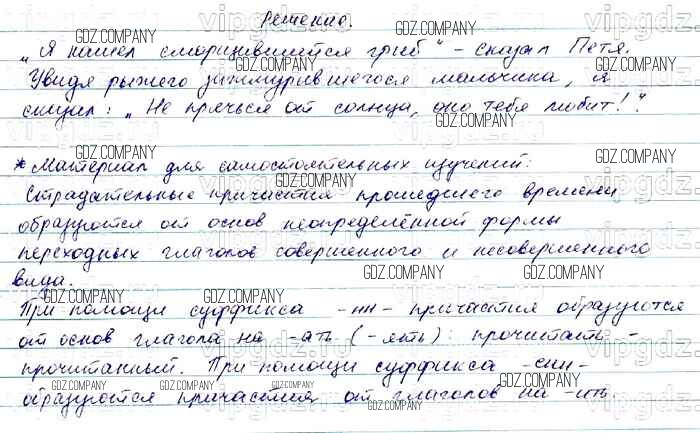 Решение.
„Я нашел сморщившийся гриб“ – сказал Петя.
Увидя рыжего зажмурившегося мальчика, я
сказал: „Не прячься от солнца, оно тебя любит!“.
* Материал для самостоятельных изучений:
Страдательные причастия прошедшего времени
образуются от основ неопределённой формы
переходных глаголов совершенного и несовершенного
вида.
При помощи суффикса -нн- причастия образуются
от основ глагола на -ать (-ять): прочитать -
прочитанный. При помощи суффикса -енн-
образуются причастия от глаголов на -ить.
GDZ.COMPANY
vipgdz.ru